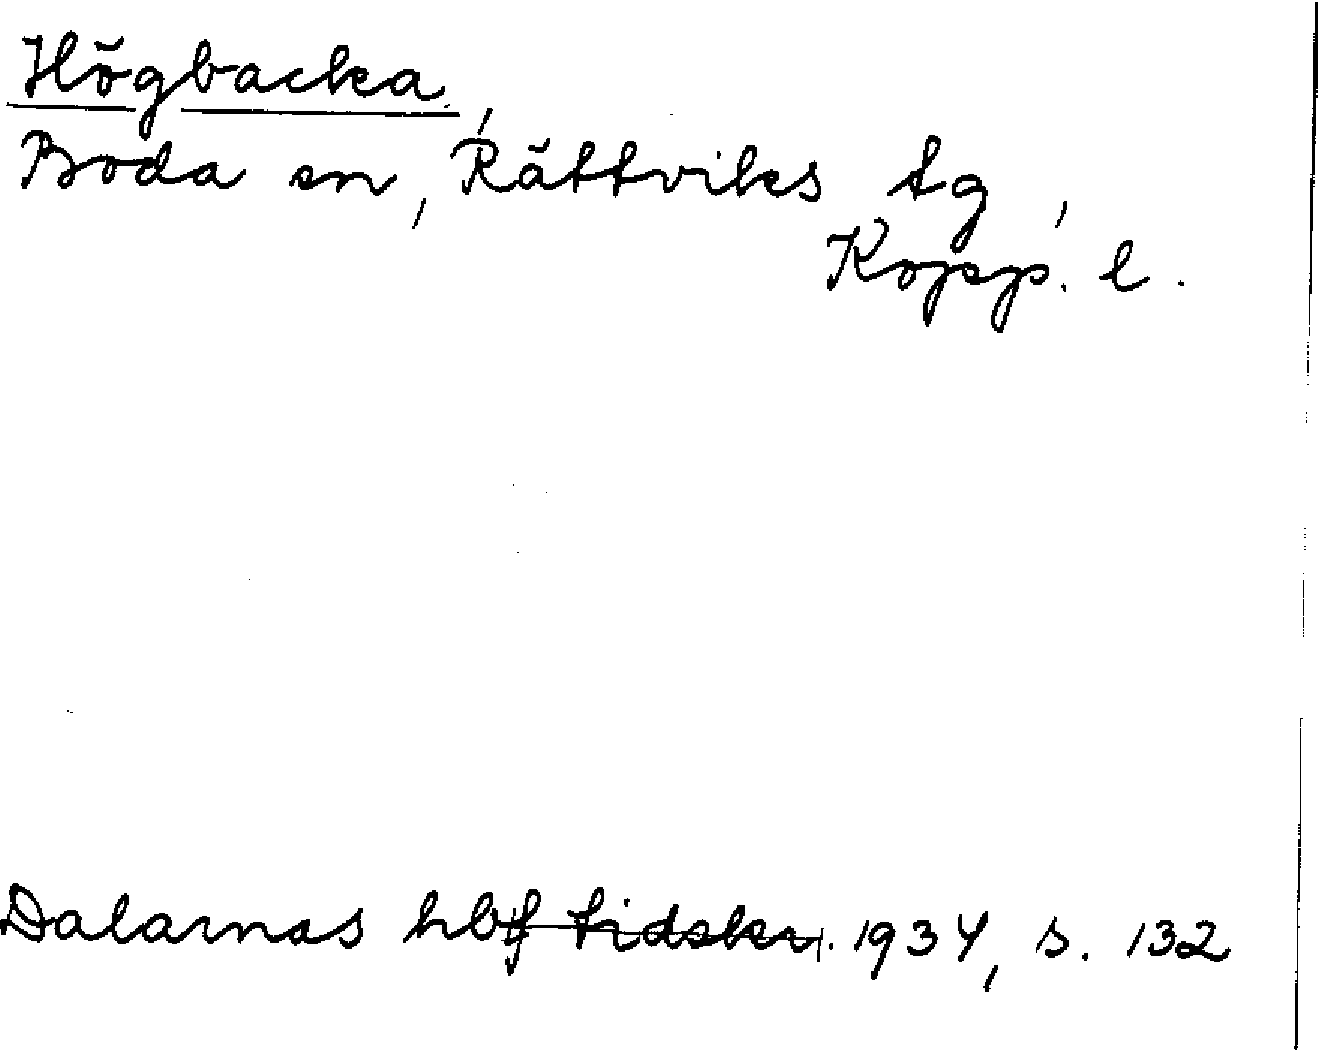 Högbacka,
Boda sn, Rättviks tg,
Kopp. l.
Dalarnas hbf tidskr. 1934, s. 132